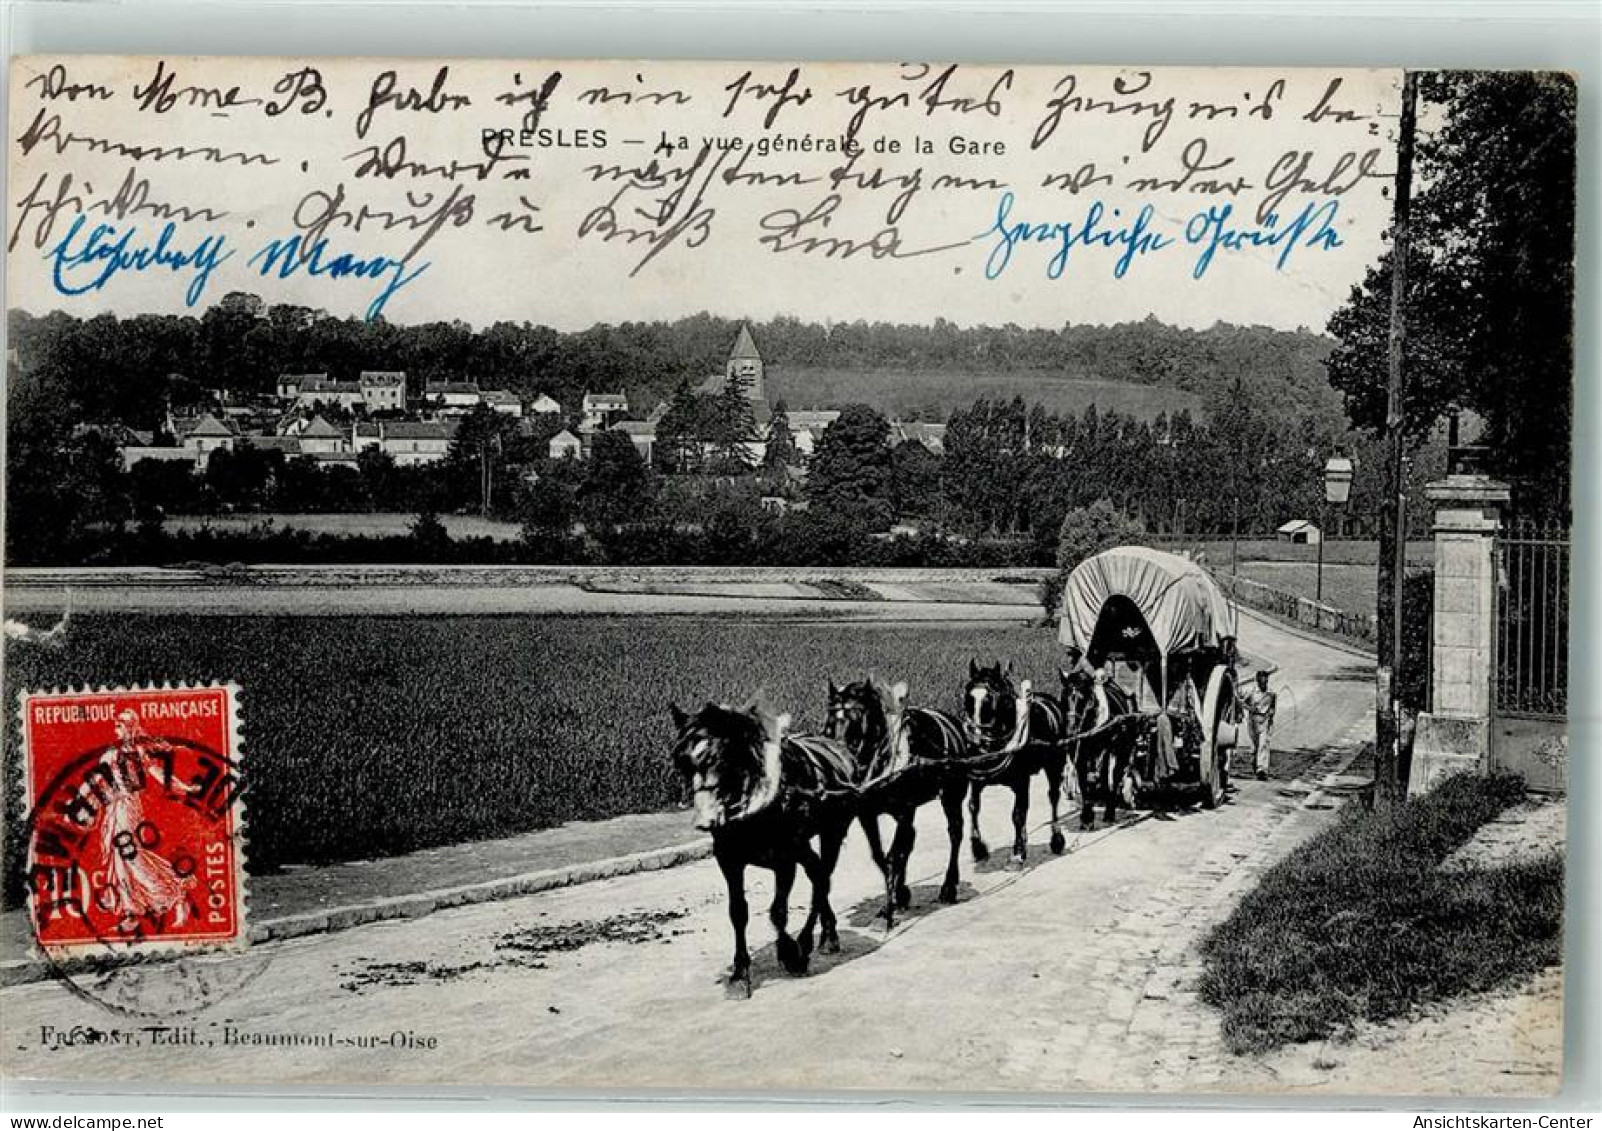 Von Mme B. habe ich ein sehr gutes Zeugnis be-
kommen. Werde nächsten tagen wieder Geld
schicken. Gruß u Kuß Lina
herzliche Grüße
Elisabeth Menz
PRESLES — La vue générale de la Gare
REPUBLIQUE FRANÇAISE
10c
POSTES
08
FREMONT, Edit., Beaumont-sur-Oise
Ansichtskarten-Center